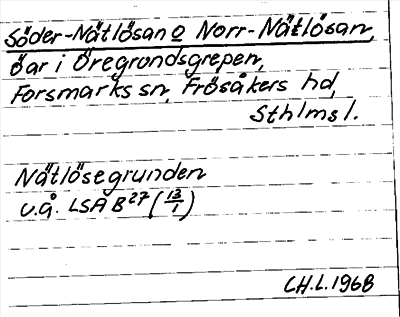 Söder-Nätlösan o Norr-Nätlösan,
öar i Öregrundsgrepen,
Forsmarks sn, Frösåkers hd,
Sthlms l.
Nätlösegrunden
u.å. LSA B²⁷ (13/1)
CH.L. 1968